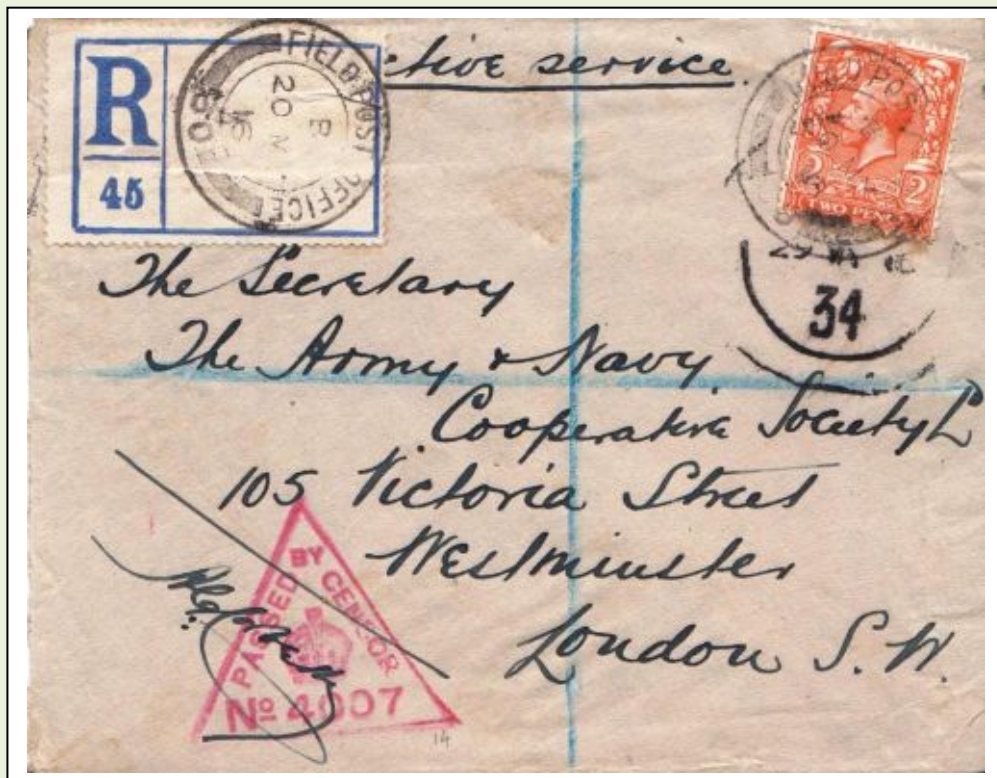 R
45
FIELD POST OFFICE
B
20 M
16
tive service.
2 2
TWO PENCE
34
The Secretary
The Army & Navy
Cooperative Society Ld
105 Victoria Street
Westminster
London S.W.
PASSED BY CENSOR
No 4007
14